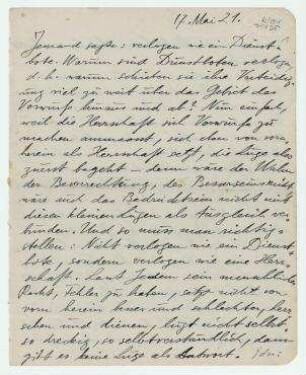 17 Mai 21.
Jemand sagte: verlogen wie ein Dienst-
bote. Warum sind Dienstboten verlogen
d. h. warum schieben sie ihre Verteidig-
ung viel zu weit über das Gebiet des
Vorwurfs hinaus und ab? Nun einfach,
weil die Herrschaft sich Vorwürfe zu
machen anmasst, sich eben von vorn-
herein als Herrschaft setzt, die Lüge also
zuerst begeht – denn wäre der Wahn
der Bevorrechtung, des Besserseins nicht
wäre auch das Bedrücktsein nicht mit
diesen kleinen Lügen als Ausgleich ver-
bunden. Und so muss man richtig-
stellen: Nicht verlogen wie ein Dienst-
bote, sondern verlogen wie eine Herr-
schaft. Lasst Jedem sein menschliches
Recht, Fehler zu haben, setzt nicht von
vorn herein besser und schlechter, herr-
schen und dienen, lügt nicht selbst
so dreckig, so selbstverständlich, dann
gibt es keine Lüge als Antwort.